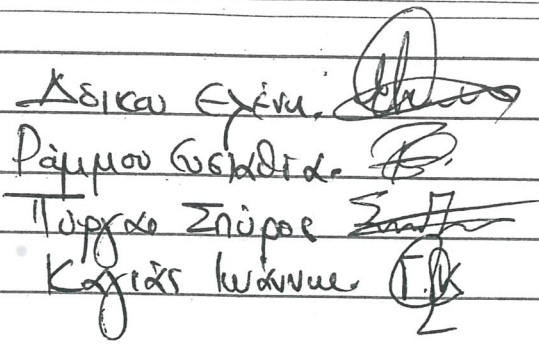 Δδικου Ελένη.
Ράμμου Ευσταθία.
Πύργαο Σπύρος
Καγιάς Ιωάννης. Γ.Κ